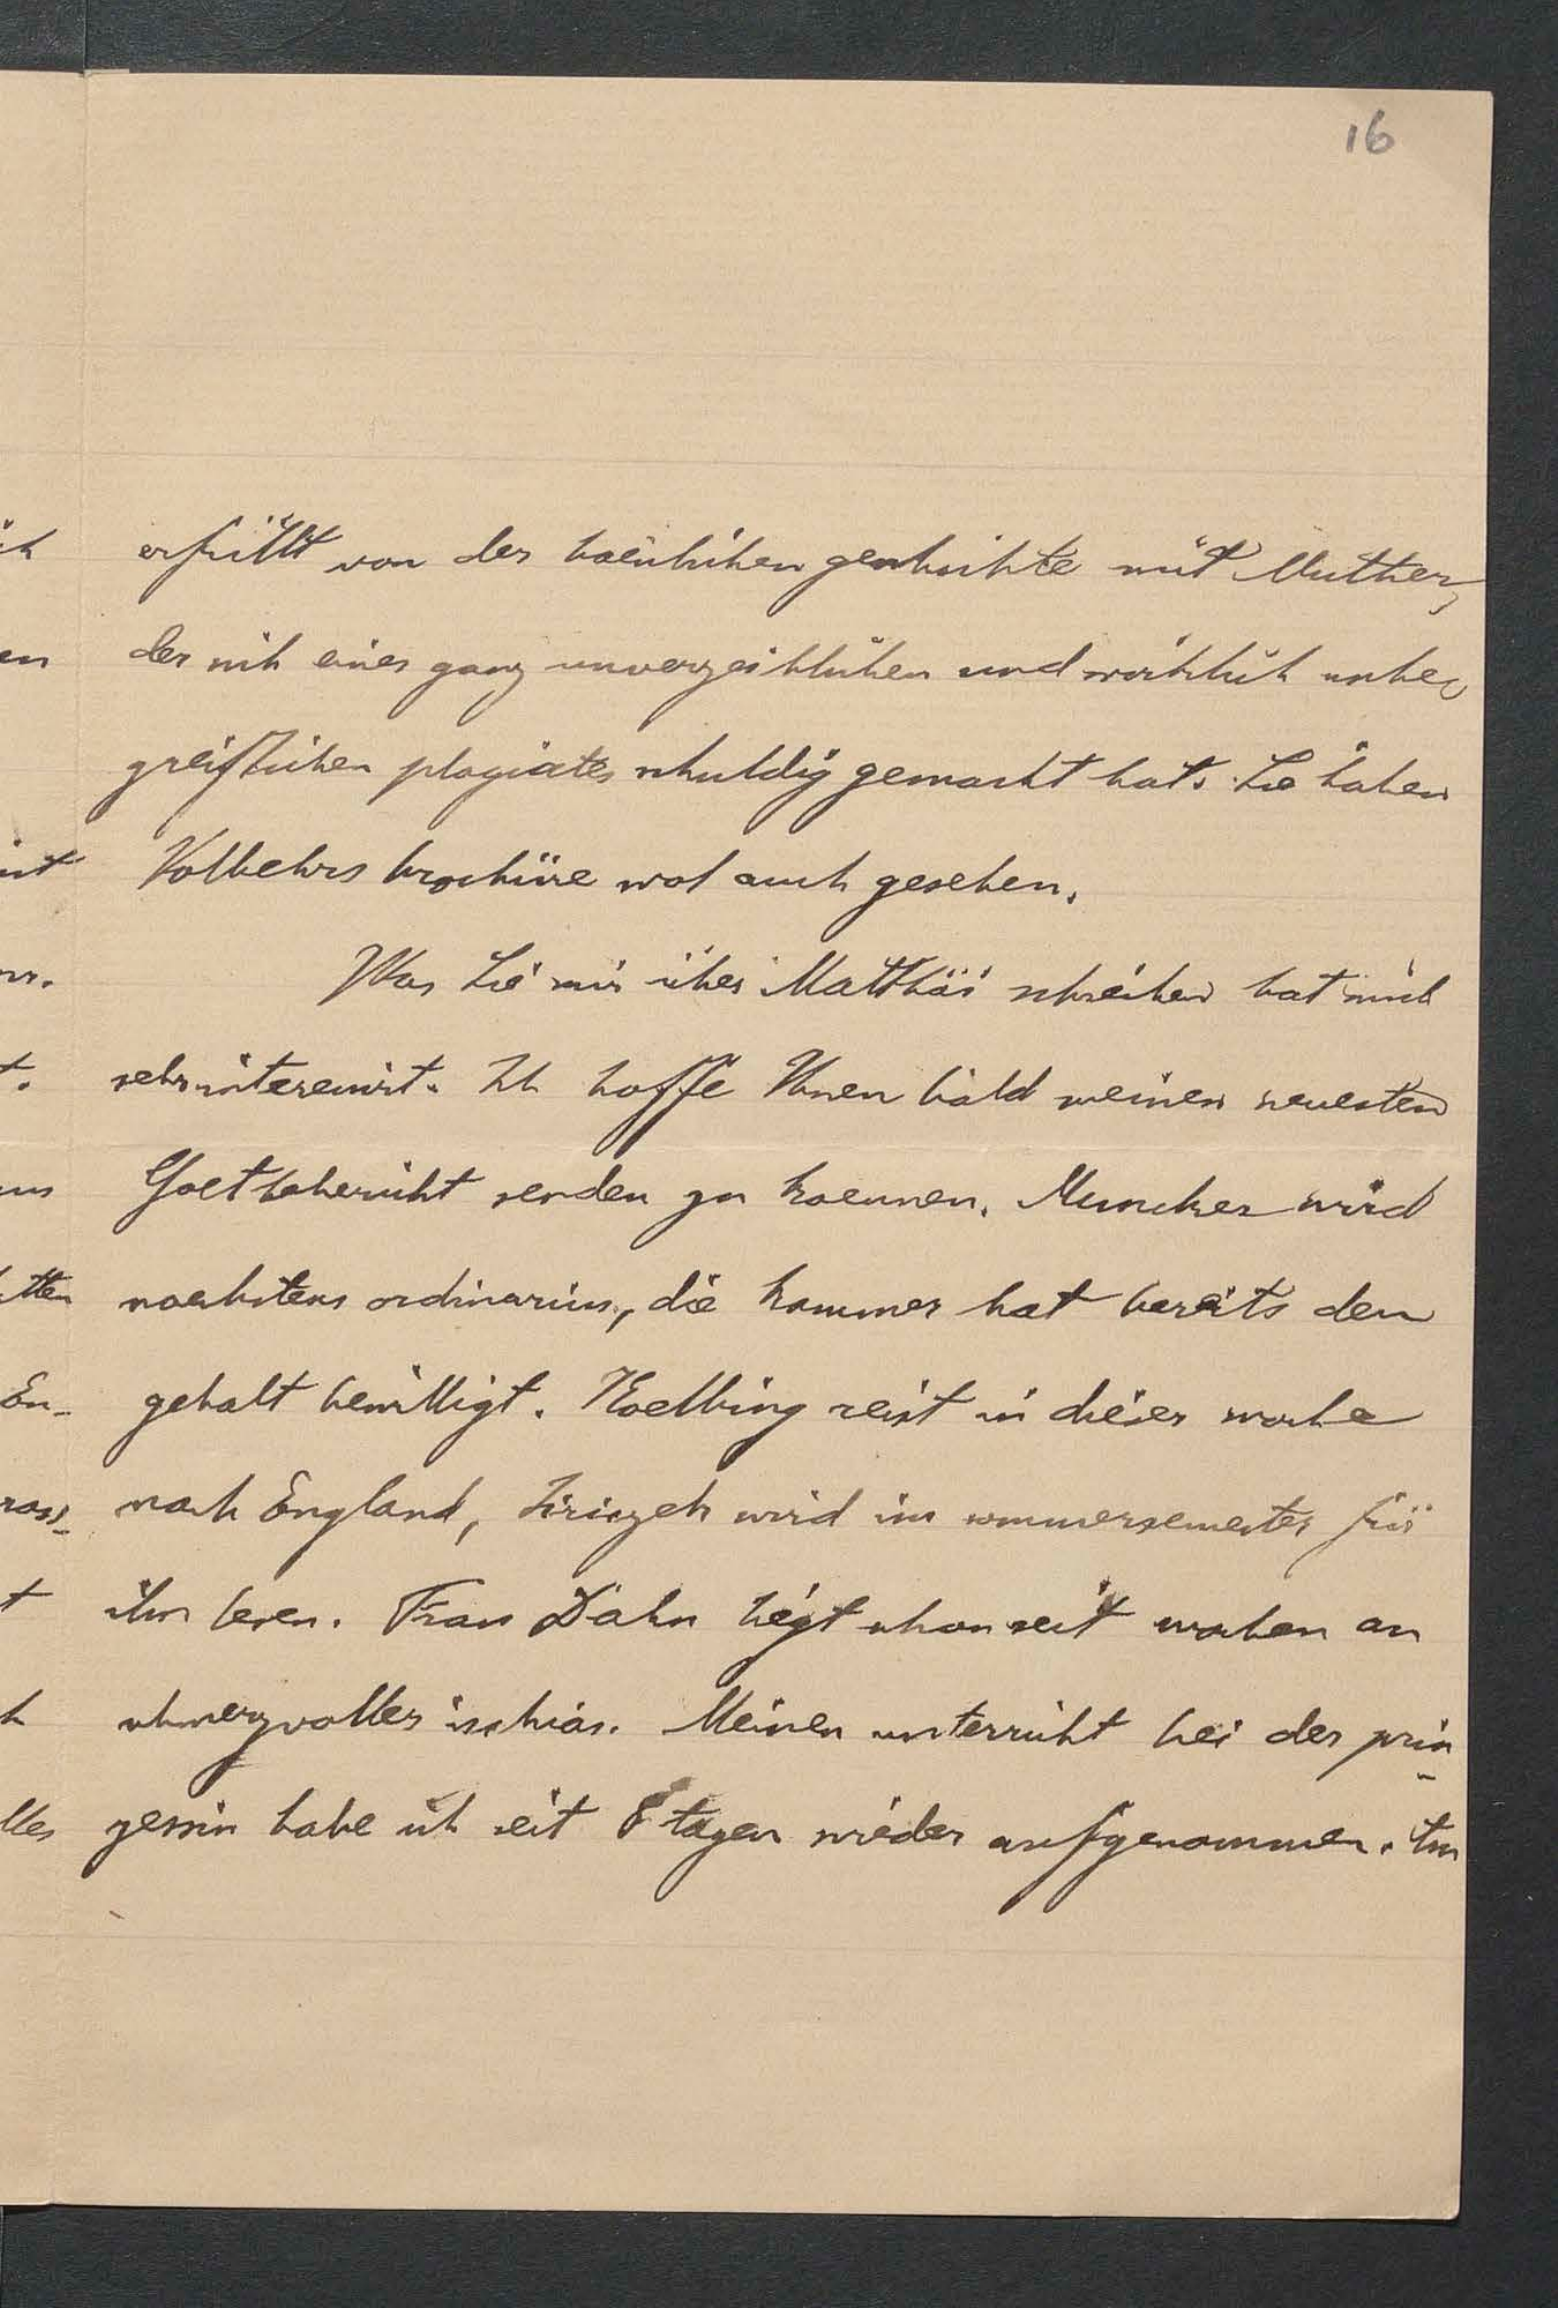 16
erfüllt von der haeslichen geschichte mit Muther,
der sich eines ganz unverzeihlichen und wirklich unbe
greiflichen plagiates schuldig gemacht hat. Sie haben
Volbehrs brochüre wol auch gesehen.
Was Sie mir über Matthäi schreiben hat mich
sehr interessirt. Ich hoffe Ihnen bald meinen neuesten
Goethebericht senden zu koennen. Muncker wird
naechstens ordinarius, die kammer hat bereits den
gehalt bewilligt. Koelbing reist in dieser woche
nach England, wird im sommersemester für
ihn lesen. Frau Dahn liegt schon seit wochen an
schmerzvoller ischias. Meinen unterricht bei der prin
zessin habe ich seit 8 tagen wieder aufgenommen. Im